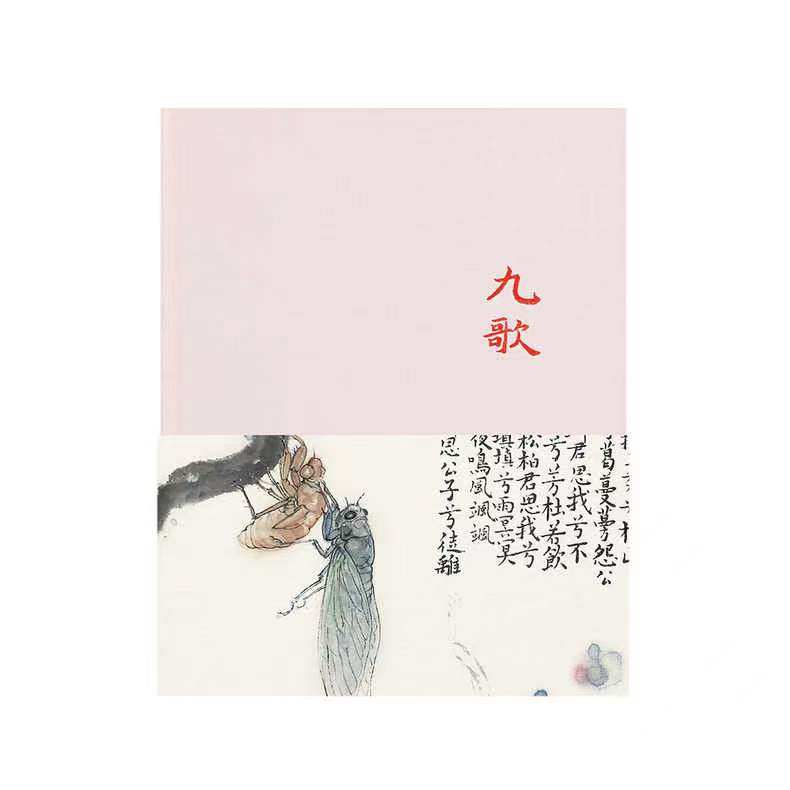 九歌
葛蔓蔓怨公
君思我兮不
兮芳杜若飲
松柏君思我兮
填填兮雨冥冥
夜鳴風颯颯
思公子兮徒離